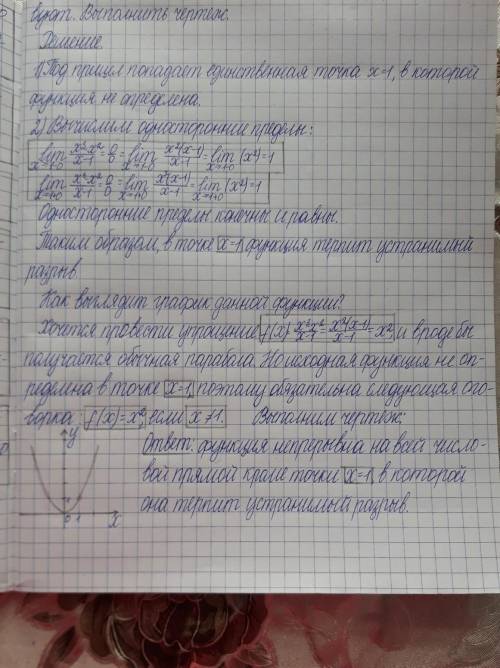 вуют. Выполнить чертеж.
Решение.
1) Под прицел попадает единственная точка x=1, в которой
функция не определена.
2) Вычислим односторонние пределы:
lim x→1-0 (x³-x²)/(x-1) = 0/0 = lim x→1-0 x²(x-1)/(x-1) = lim x→1-0 (x²) = 1
lim x→1+0 (x³-x²)/(x-1) = 0/0 = lim x→1+0 x²(x-1)/(x-1) = lim x→1+0 (x²) = 1
Односторонние пределы конечны и равны.
Таким образом, в точке x=1 функция терпит устранимый
разрыв
Как выглядит график данной функции?
Хочется провести упрощение f(x) = (x³-x²)/(x-1) = x²(x-1)/(x-1) = x², и вроде бы
получается обычная парабола. Но исходная функция не оп-
ределена в точке x=1, поэтому обязательна следующая ого-
ворка: f(x)=x², если x≠1. Выполним чертеж:
Ответ: функция непрерывна на всей число-
вой прямой кроме точки x=1, в которой
она терпит устранимый разрыв.
y
1
0 1
x